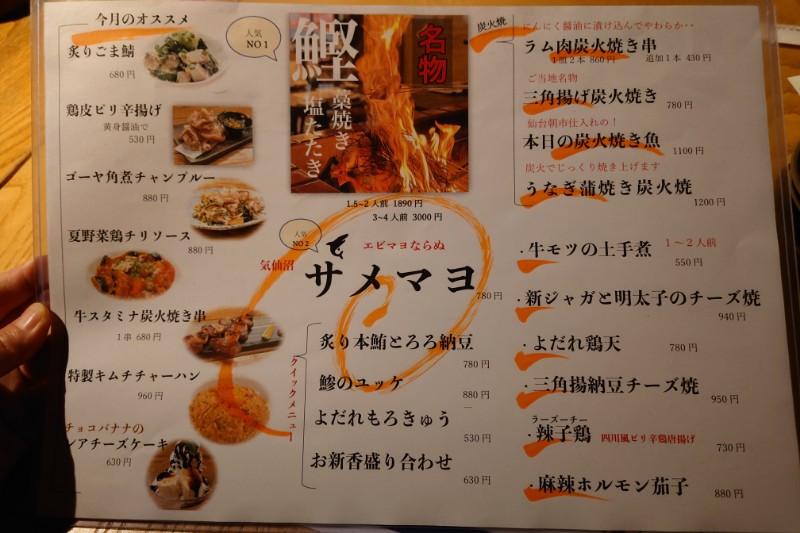 今月のオススメ
炙りごま鯖
680円
鶏皮ピリ辛揚げ
黄身醤油で
530円
ゴーヤ角煮チャンプルー
880円
夏野菜鶏チリソース
880円
牛スタミナ炭火焼き串
1串 680円
特製キムチチャーハン
960円
チョコバナナの
レアチーズケーキ
630円
人気
NO1
名物
鰹
藁焼き
塩たたき
1.5~2人前 1890円
3~4人前 3000円
人気
NO2
エビマヨならぬ
気仙沼
サメマヨ
780円
クイックメニュー
炙り本鮪とろろ納豆
780円
鯵のユッケ
880円
よだれもろきゅう
530円
お新香盛り合わせ
630円
炭火焼
にんにく醤油に漬け込んでやわらか・・
ラム肉炭火焼き串
1皿2本 860円 追加1本 430円
ご当地名物
三角揚げ炭火焼き
780円
仙台朝市仕入れの!
本日の炭火焼き魚
1100円
炭火でじっくり焼き上げます
うなぎ蒲焼き炭火焼
1200円
・牛モツの土手煮
1~2人前
550円
・新ジャガと明太子のチーズ焼
940円
・よだれ鶏天
780円
・三角揚納豆チーズ焼
950円
ラーズーチー
・辣子鶏 四川風ピリ辛鶏唐揚げ
730円
・麻辣ホルモン茄子
880円